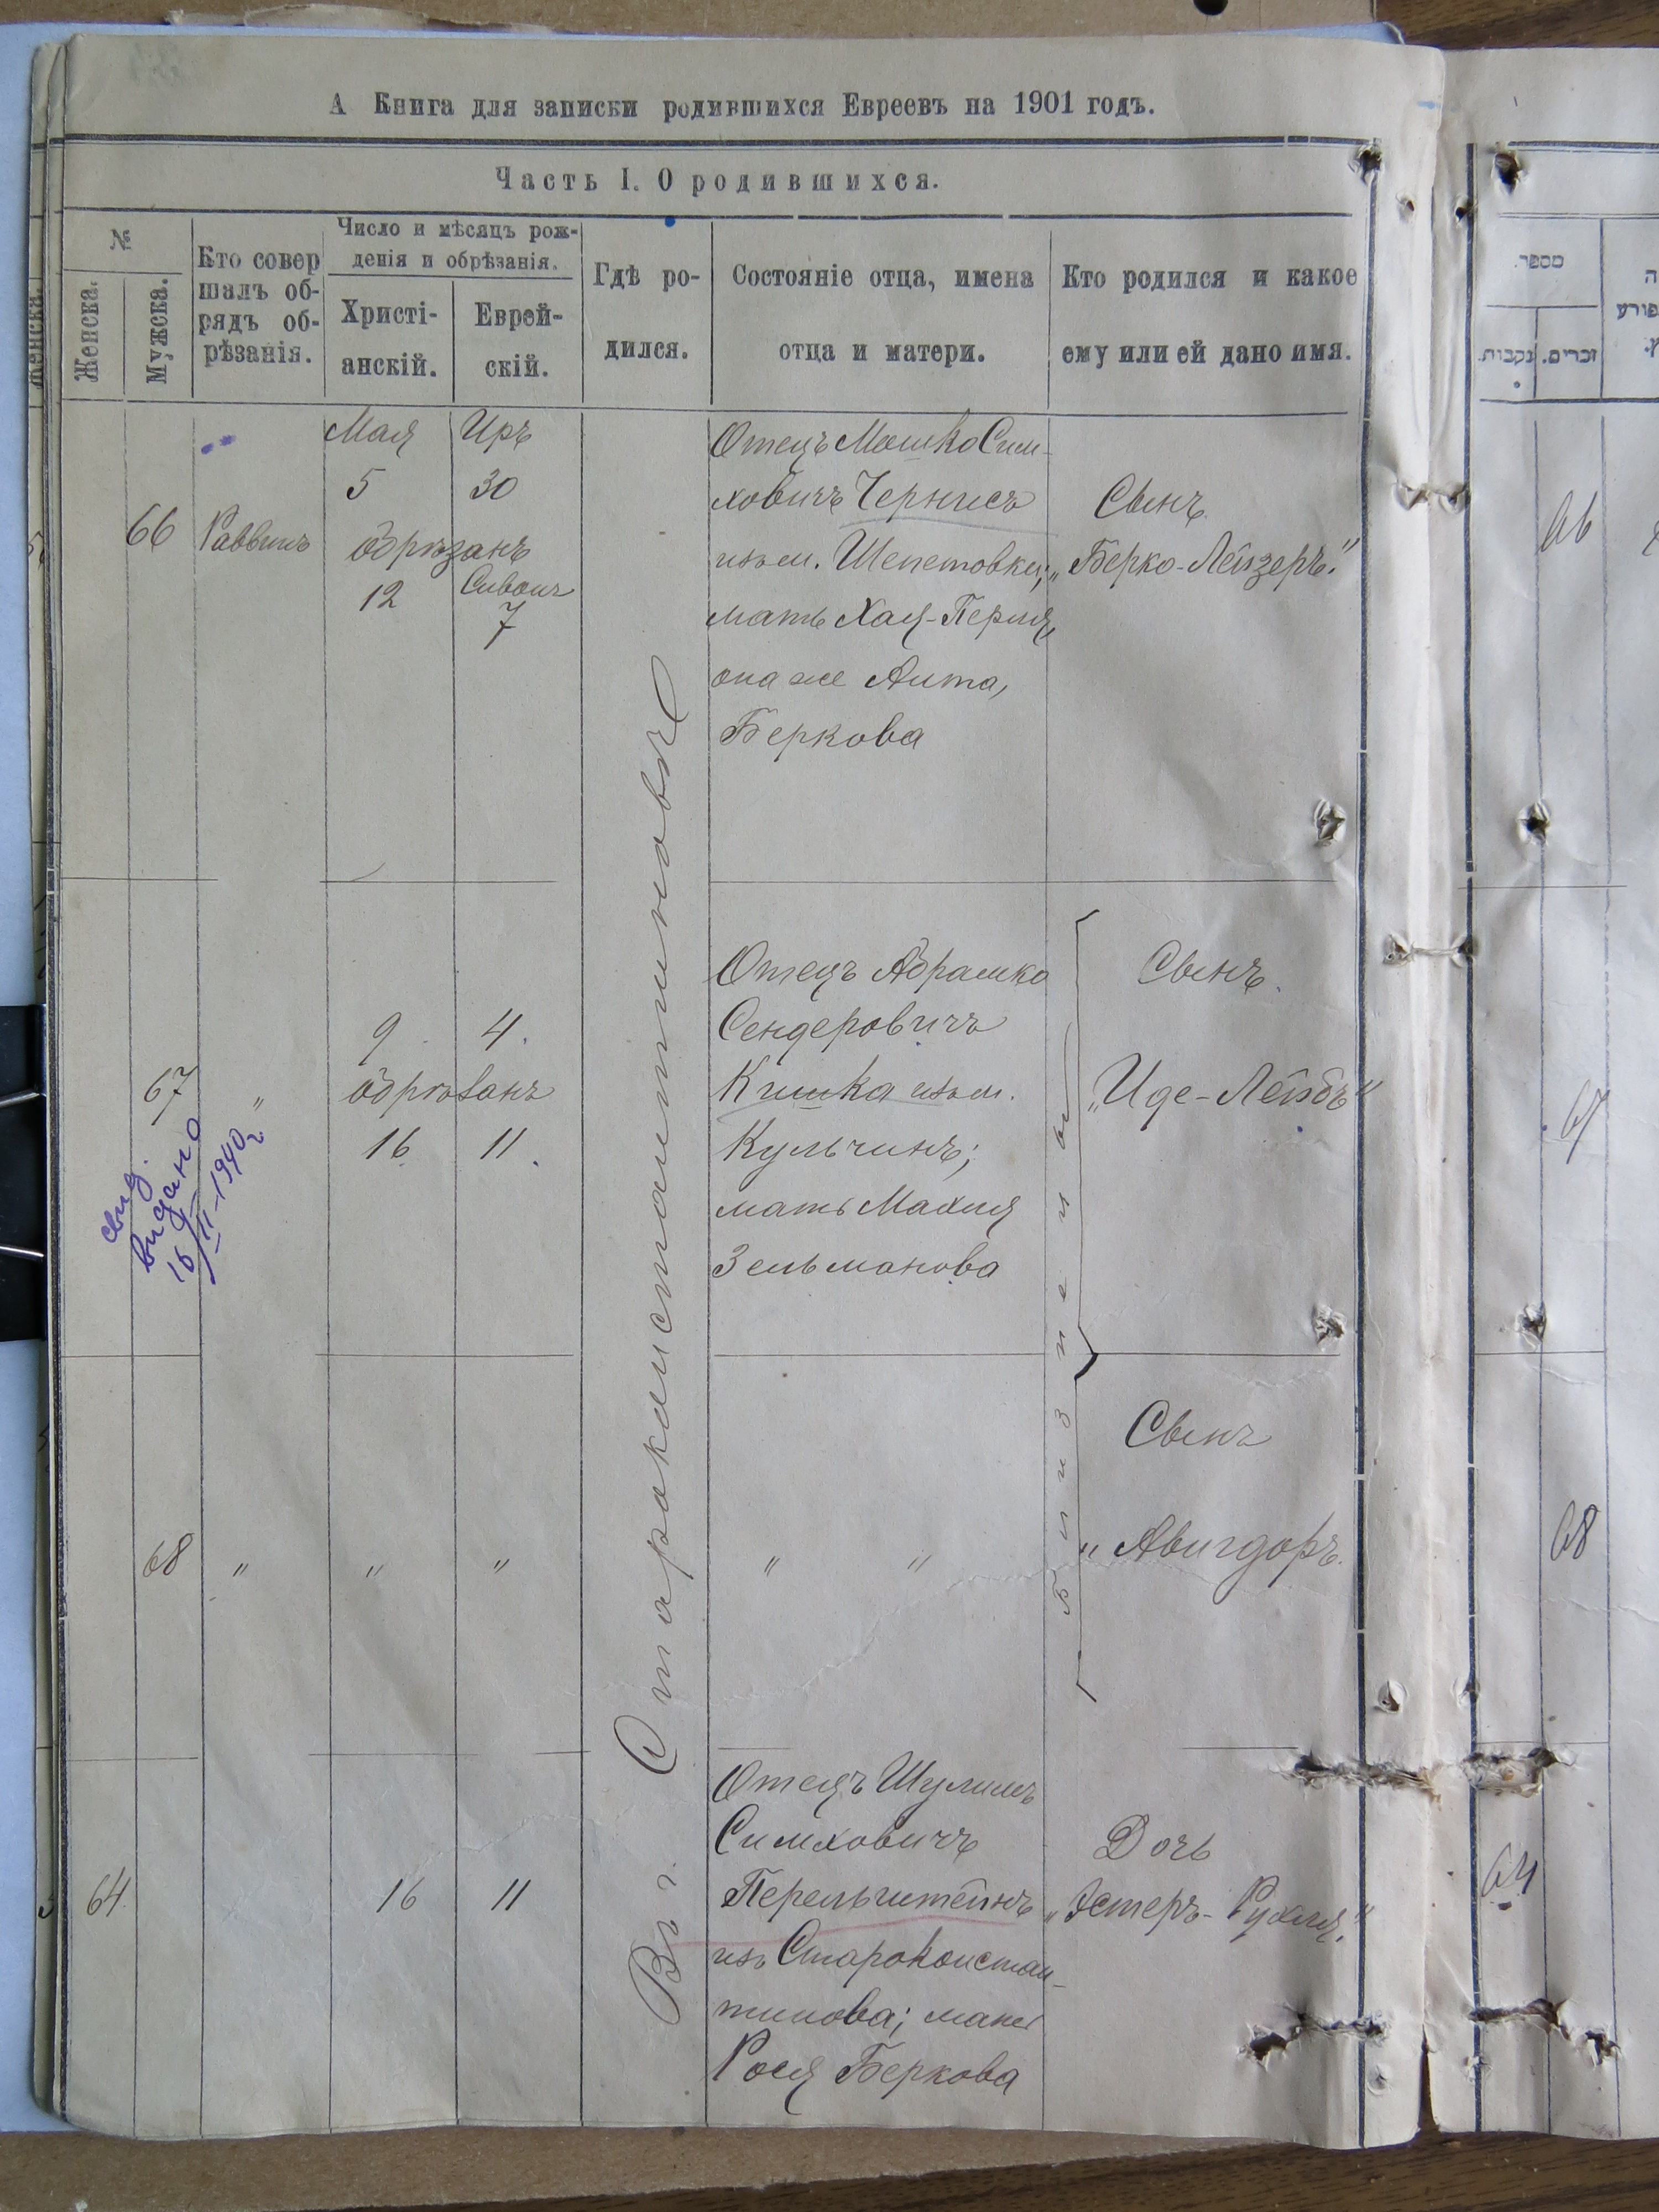 А Книга для записки родившихся Евреевъ на 1901 годъ.
Часть I. О родившихся.
№
Женска.
Мужска.
Кто совер
шалъ об-
рядъ об-
рѣзанія.
Число и мѣсяцъ рож-
денія и обрѣзанія.
Христі-
анскій.
Еврей-
скій.
Гдѣ ро-
дился.
Состояніе отца, имена
отца и матери.
Кто родился и какое
ему или ей дано имя.
מספר.
נקבות.
זכרים.
Въ г. Староконстантиновѣ
66
Раввинъ
Мая
Иръ
5
30
обрѣзанъ
12
Сиванъ
7
Отецъ Мошко Сим-
ховичъ Чернисъ
изъ м. Шепетовки;
мать Хая-Перля,
она же Анта,
Беркова
Сынъ
„Берко-Лейзеръ."
66
67
"
свид.
видано
16/II-1940 г
9
4.
обрѣзанъ
16
11.
Отецъ Абрамко
Сендеровичъ
Кишка изъ м.
Кульчинъ;
мать Махля
Зельманова
Близнецы
Сынъ.
„Иде-Лейбъ"
67
68
"
"
"
"
"
Сынъ
"Авигдоръ.
68
64
16
11
Отецъ Шулимъ
Симховичъ
Перельштейнъ
изъ Староконстан-
тинова; мать
Рося Беркова
Дочь
„Эстеръ-Рухля."
64